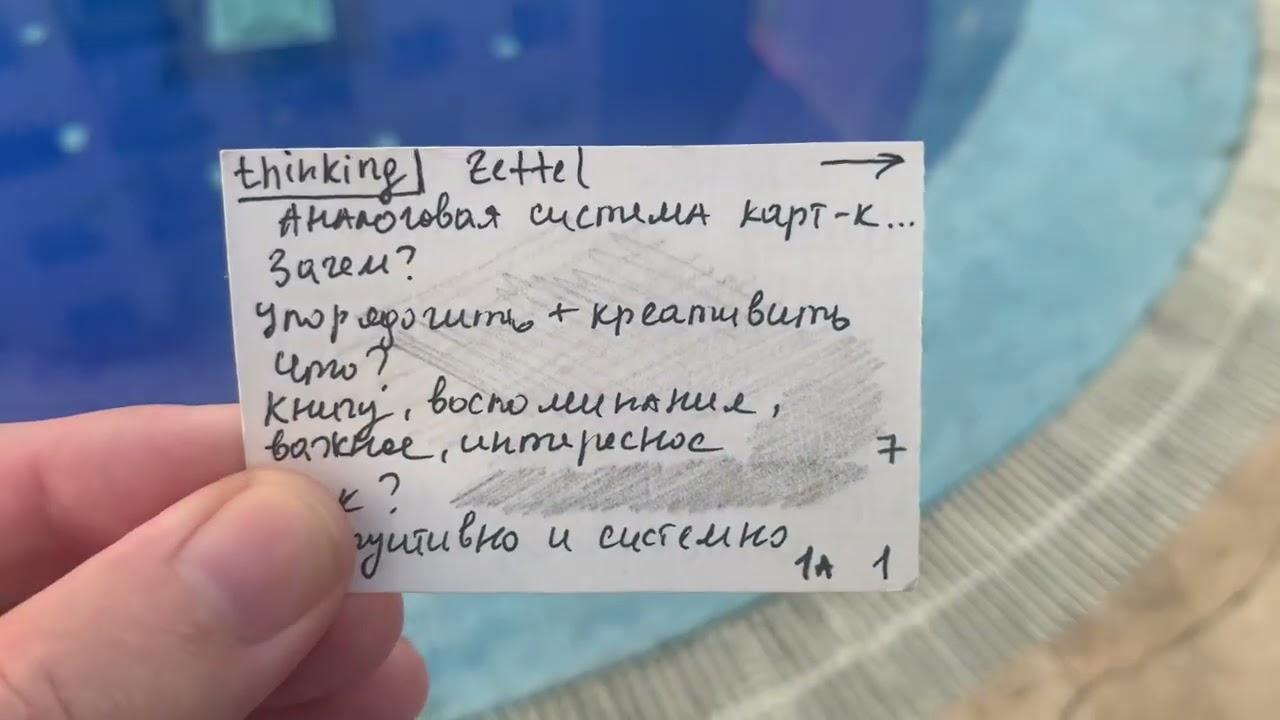 thinking Zettel →
Аналоговая система карт-к...
Зачем?
Упорядочить + креативить
Что?
Книгу, воспоминания,
важное, интересное 7
к?
туитивно и системно
1А 1